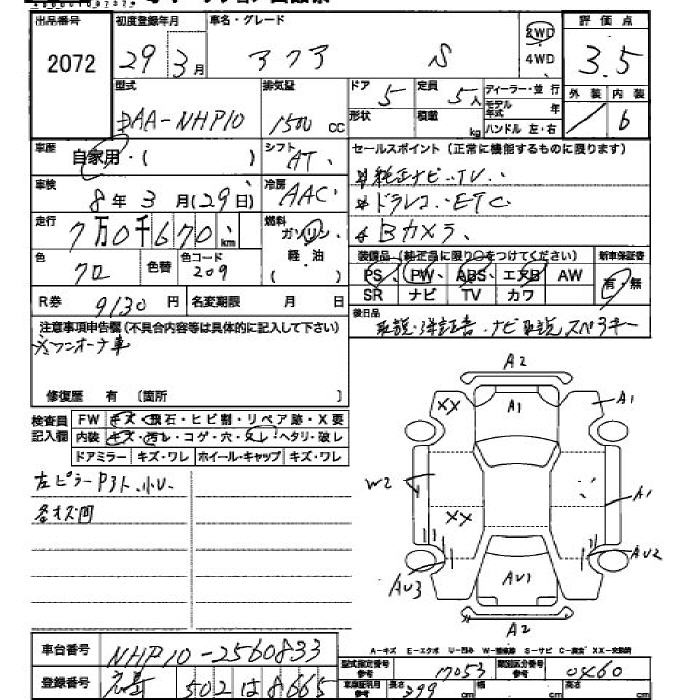 出品番号 初度登録年月 車名・グレード 評価点
2072 29年3月 アクア S 2WD 4WD 3.5
型式 排気量 ドア 5 定員 5人 ディーラー・並行 外装 内装
DAA-NHP10 1500cc 形状 積載 kg モデル年式 年 ハンドル 左・右 6
車歴 自家用・( ) シフト AT セールスポイント(正常に機能するものに限ります)
車検 8年3月(29日) 冷房 AAC ※純正ナビ・TV
走行 7万0千670km 燃料 ガソリン・軽・油( ) ※ドラレコ・ETC
※Bカメラ
色 クロ 色替 色コード 209 装備品(純正品に限り○をつけてください) 新車保証書
PS PW ABS エアB AW 有・無
R券 9130円 名変期限 月 日 SR ナビ TV カワ
注意事項申告欄(不具合内容等は具体的に記入して下さい) 後日品
取説・保証書・ナビ取説 スペアキー
※ワンオーナー車
修復歴 有〔箇所 〕
検査員記入欄 FW キズ・飛石・ヒビ割・リペア跡・X要
内装 キズ・汚レ・コゲ・穴・スレ・ヘタリ・破レ
ドアミラー キズ・ワレ ホイール・キャップ キズ・ワレ
左ピラーPヨト、小U、
各オズ凹
A2
XX A1 A1
W2 A1
XX
AU3 AU1 AU2
A2
A-キズ E-エクボ U-凹み W-補修跡 S-サビ C-腐食 XX-交換済
車台番号 NHP10-2560833
型式指定番号 参考 17053 類別区分番号 参考 0460
登録番号 502 は 8665
車庫証明用 参考 長さ 399 cm 幅 cm 高さ cm